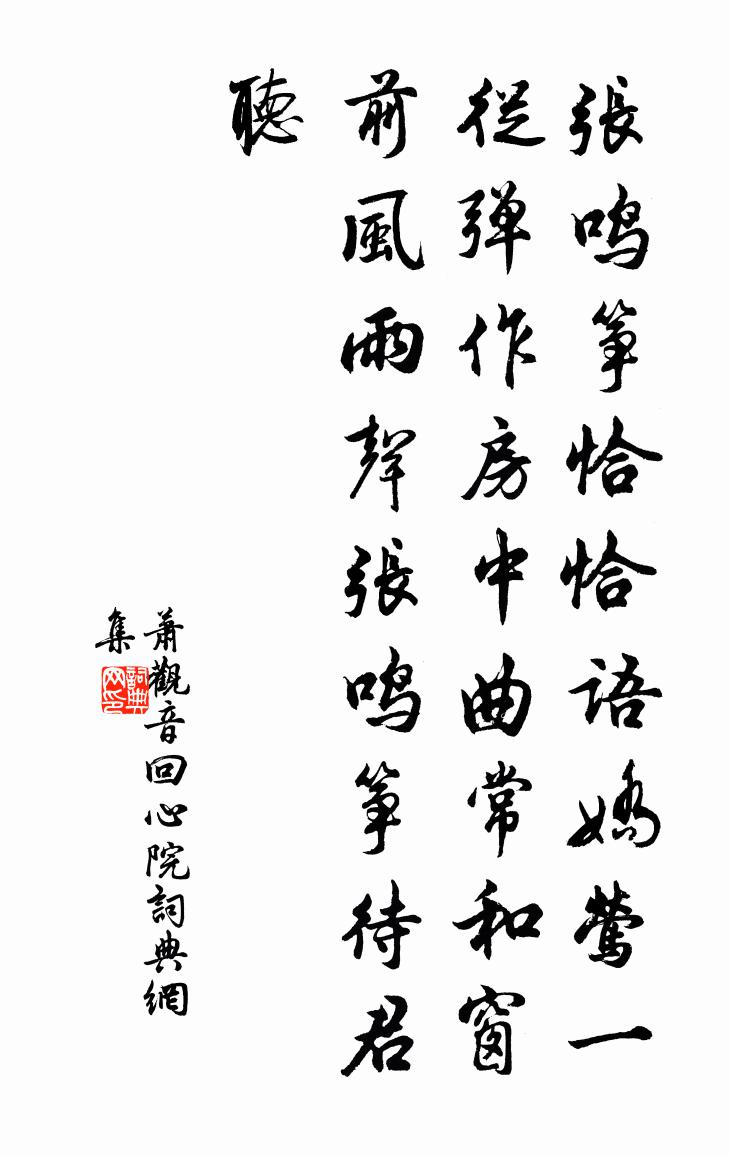 張鳴箏恰恰語嬌鶯一
從彈作房中曲常和窗
前風雨聲張鳴箏待君
聽
蕭觀音回心院詞典網
集
詞典
网印